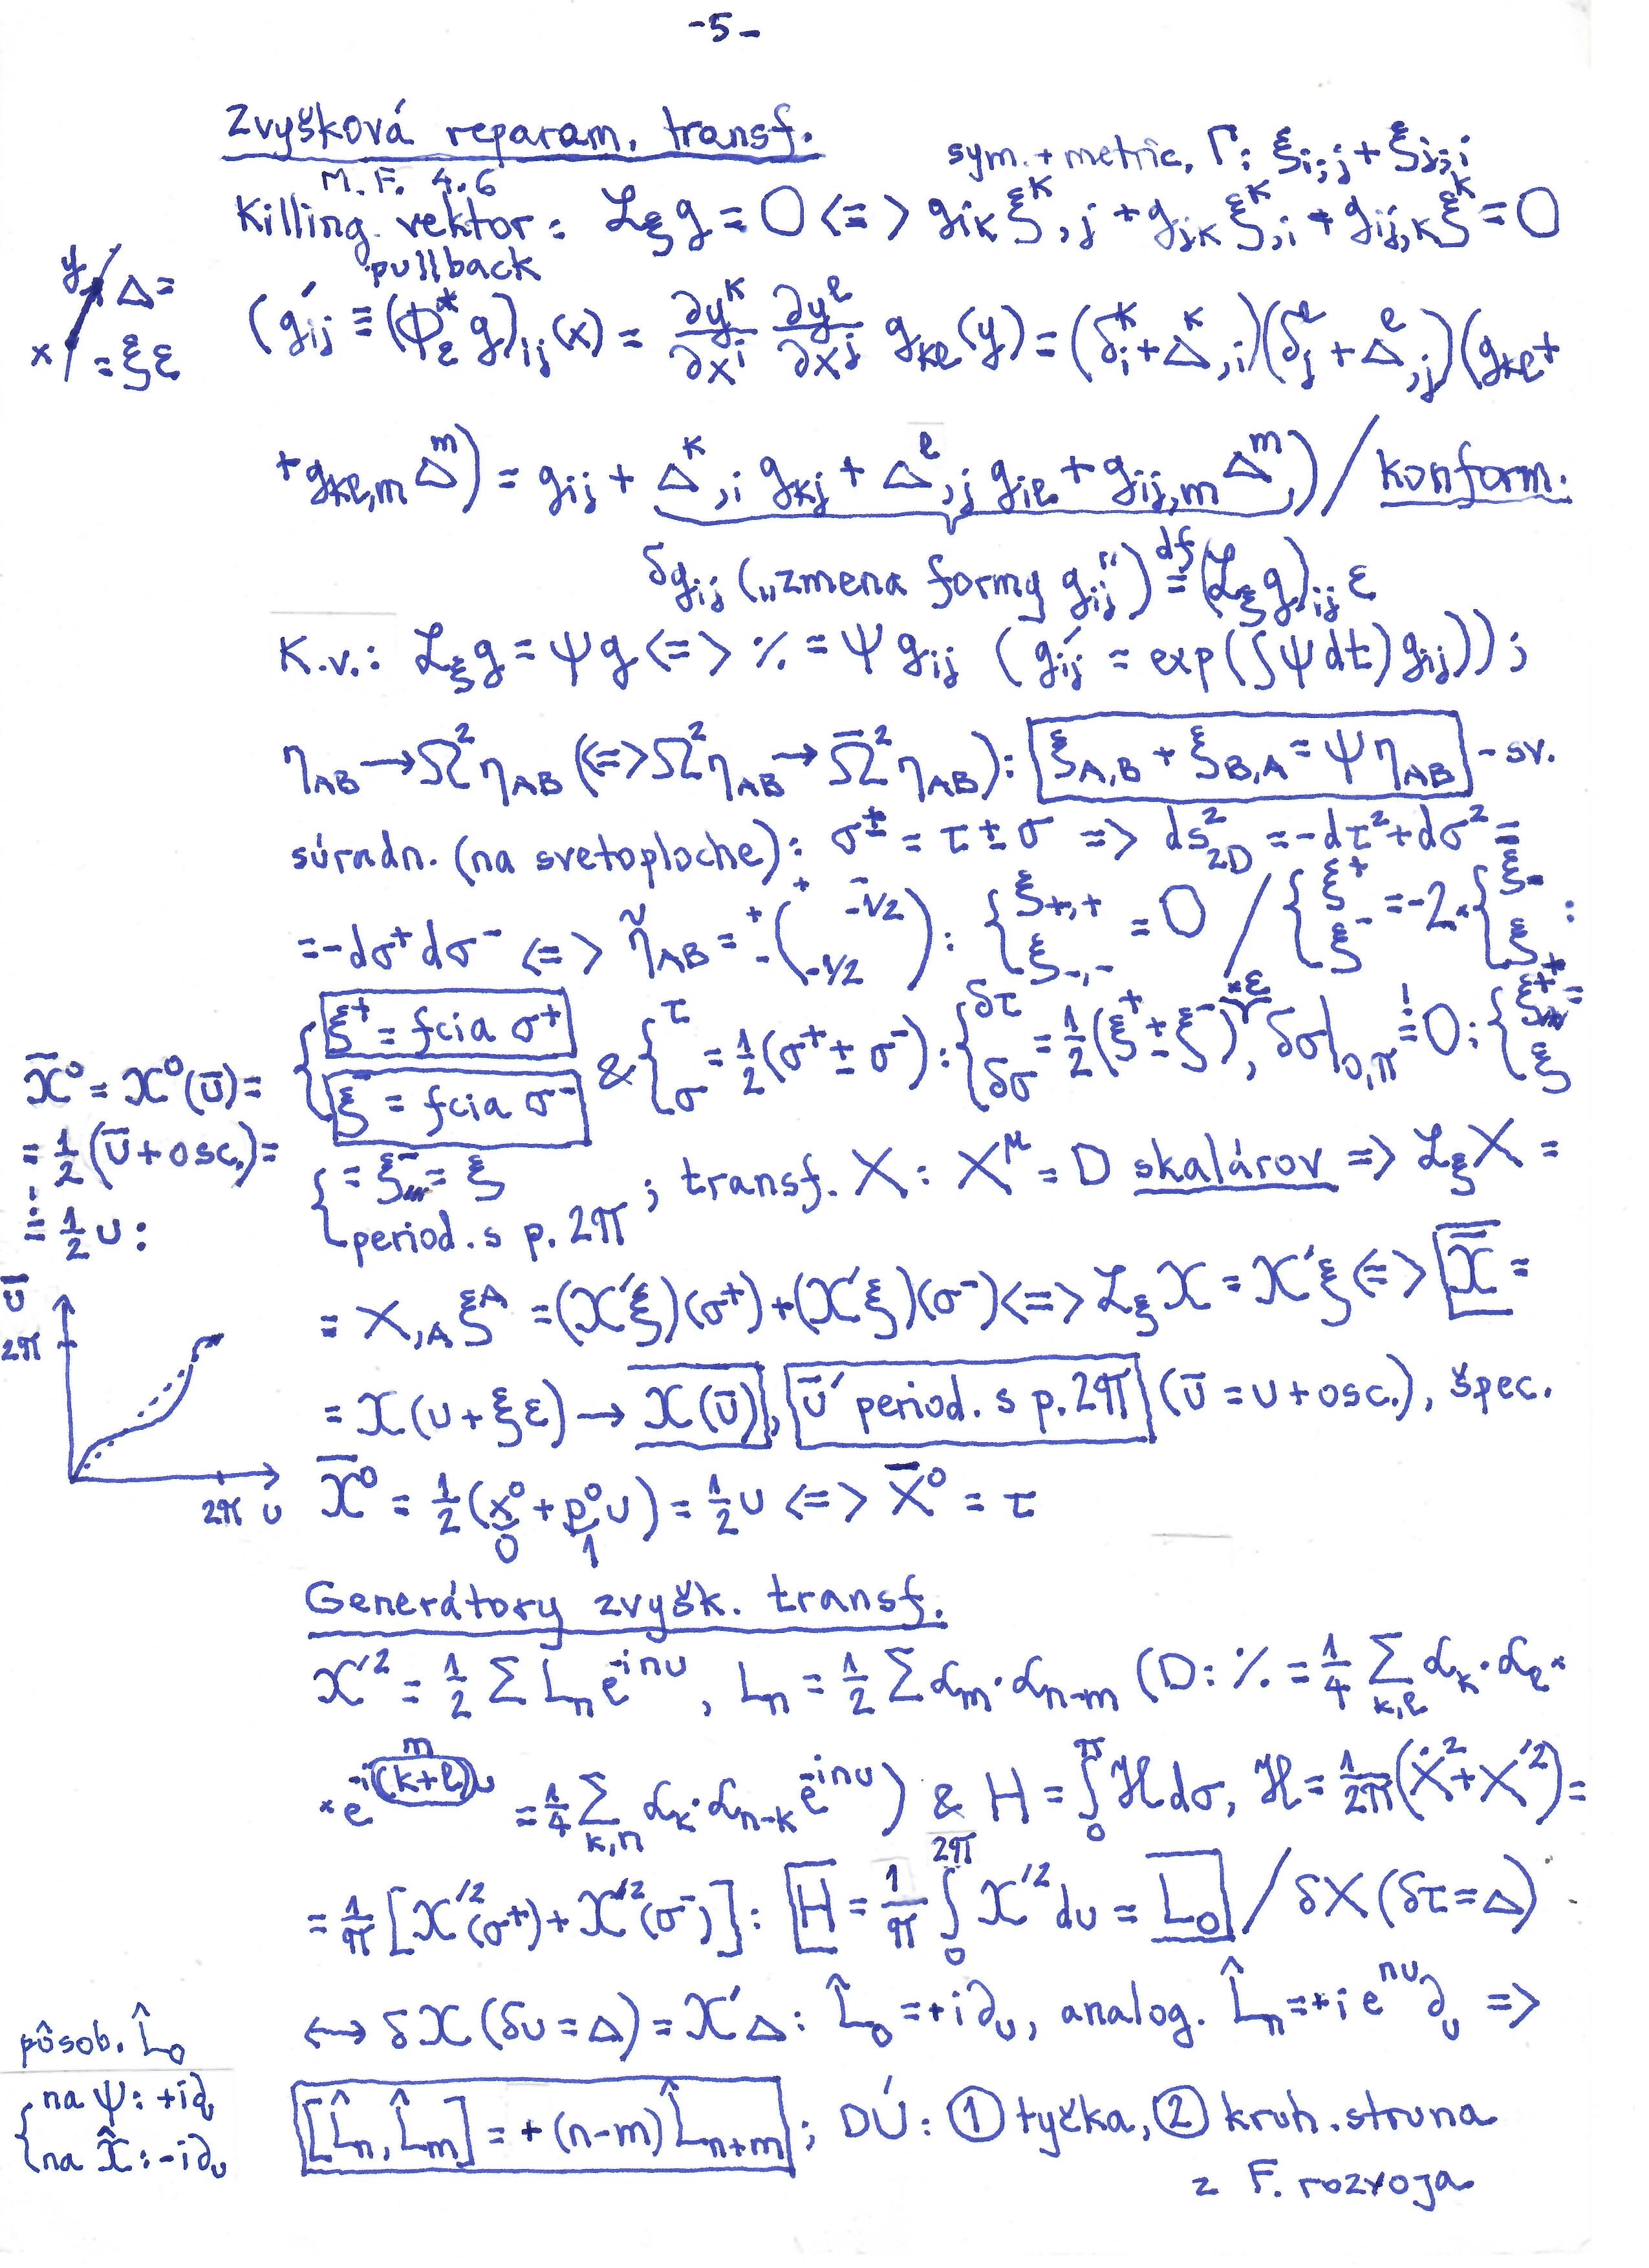 -5-
Zvyšková reparam. transf.
M.F. 4.6
sym. + metric. Γ: ξi;j + ξj;i
Killing. vektor: ℒ_ξ g = 0 <=> g_ik ξ^k,j + g_jk ξ^k,i + g_ij,k ξ^k = 0
pullback
y Δ=
x =ξε
(g'_ij ≡ (Φ*_ε g)_ij (x) = ∂y^k/∂x^i ∂y^l/∂x^j g_kl(y) = (δ^k_i + Δ^k,i)(δ^l_j + Δ^l,j)(g_kl +
+ g_kl,m Δ^m) = g_ij + Δ^k,i g_kj + Δ^l,j g_il + g_ij,m Δ^m) / konform.
δg_ij („zmena formy g_ij") df= (ℒ_ξ g)_ij ε
K.v.: ℒ_ξ g = Ψg <=> ٪ = Ψ g_ij (g'_ij = exp(∫Ψdt) g_ij));
η_AB → Ω² η_AB (<=> Ω² η_AB → Ω̄² η_AB): ξ_A,B + ξ_B,A = Ψ η_AB - sv.
súradn. (na svetoploche): σ^± = τ ± σ => ds²_2D = -dτ² + dσ² =
= -dσ⁺dσ⁻ <=> η̃_AB = + - ( + - -1/2 -1/2 ): { ξ_+,+ ξ_-,- = 0 / { ξ⁺ ξ⁻ = -2 × { ξ_- ξ_+ :
{ ξ⁺ = fcia σ⁺ ξ⁻ = fcia σ⁻ & { τ σ = 1/2 (σ⁺ ± σ⁻): { δτ δσ = 1/2 (ξ⁺ ± ξ⁻) ×ε, δσ|_0,π != 0: { ξ⁺ = ξ
X̄⁰ = X⁰(ū) =
= 1/2 (ū + osc.) =
!= 1/2 u:
{ = ξ⁻ = ξ period. s p. 2π ; transf. X: X^μ = D skalárov => ℒ_ξ X =
= X,_A ξ^A = (X'ξ)(σ⁺) + (X'ξ)(σ⁻) <=> ℒ_ξ X = X'ξ <=> X̄ =
ū
2π
2π u
= X(u + ξε) → X(ū), ū' period. s p. 2π (ū = u + osc.), špec.
X̄⁰ = 1/2 (x⁰ + p⁰u) = 1/2 u <=> X̄⁰ = τ
0 1
Generátory zvyšk. transf.
X'² = 1/2 Σ L_n e^-inu, L_n = 1/2 Σ α_m·α_n-m (D: ٪ = 1/4 Σ_k,l α_k·α_l ×
× e^-i(k+l)u m = 1/4 Σ_k,n α_k·α_n-k e^-inu) & H = ∫_0^π ℋdσ, ℋ = 1/2π (Ẋ² + X'²) =
= 1/π [X'²(σ⁺) + X'²(σ⁻)]: H = 1/π ∫_0^2π X'² du = L_0 / δX (δτ = Δ)
↔ δX (δu = Δ) = X'Δ: L̂_0 = +i∂_u, analog. L̂_n = +i e^nu ∂_u =>
pôsob. L̂_0
{ na ψ: +i∂
na X̂: -i∂_u
[L̂_n, L̂_m] = +(n-m) L̂_n+m ; DÚ: ① tyčka, ② kruh. struna
z F. rozvoja